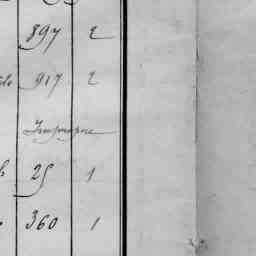 897 2
917 2
Impropre
25 1
360 1